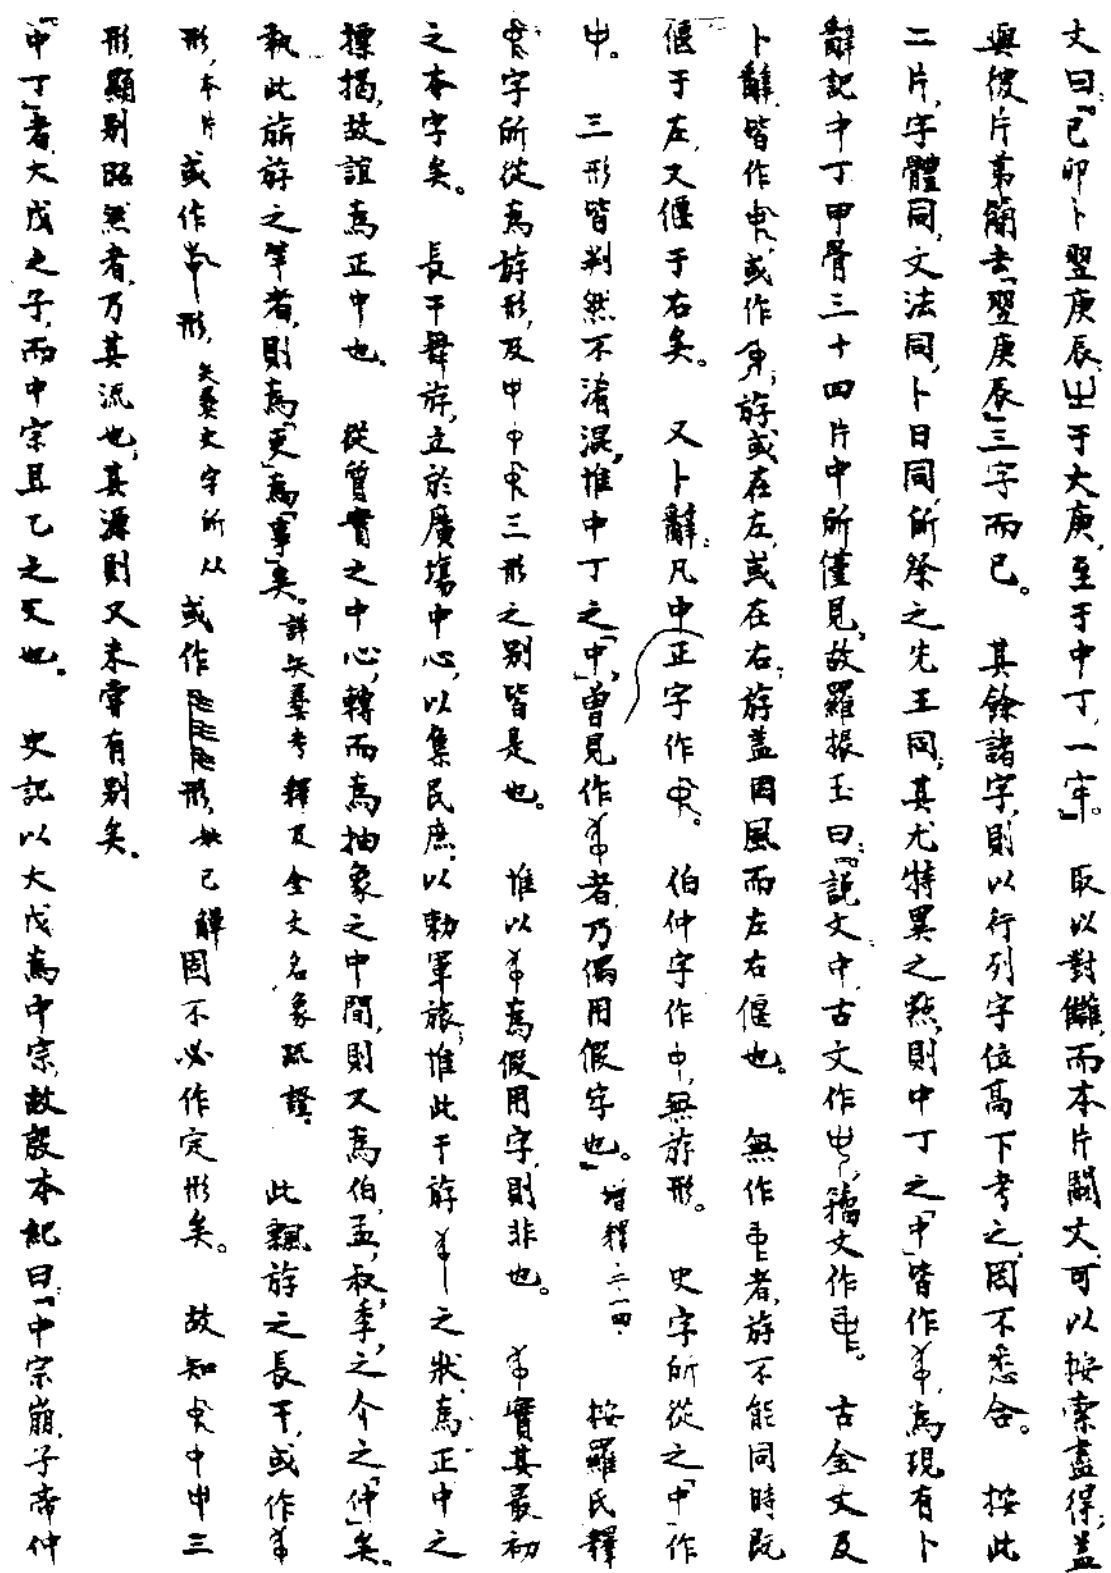 文曰：『己卯卜翌庚辰㞢于大庚，至于中丁，一牢』。 取以對讎，而本片闕文，可以按索盡得；蓋
與彼片第簡去「翌庚辰」三字而已。 其餘諸字，則以行列字位高下考之，罔不悉合。 按此
二片，字體同，文法同，卜日同，所祭之先王同；其尤特異之點，則中丁之「中」皆作，為現有卜
辭記中丁甲骨三十四片中所僅見，故羅振玉曰：『說文：中，古文作，籀文作。 古金文及
卜辭，皆作，或作，斿或在左，或在右；斿蓋因風而左右偃也。 無作者，斿不能同時既
偃于左，又偃于右矣。 又卜辭：凡中正字作。 伯仲字作中，無斿形。 史字所從之「中」作
。 三形皆判然不淆混，惟中丁之「中」，曾見作者，乃偶用假字也。』增釋二一四． 按羅氏釋
字所從為斿形，及三形之別皆是也。 惟以為假用字，則非也。 實其最初
之本字矣。 長干舞斿，立於廣場中心，以集民庶，以勑軍旅；惟此干斿之狀，為正中之
標揭，故誼為正中也。 從曾實之中心，轉而為抽象之中間，則又為伯，孟，叔季，之介之「仲」矣。
執此旂斿之竿者，則為「吏」為「事」矣。詳矢彝考釋及金文名象疏證． 此飄斿之長干，或作
形，本片或作形，矢彝文字所从 或作形，已 固不必作定形矣。 故知中三
形，顯別昭然者，乃其流也，其源則又未嘗有別矣．
「中丁」者，大戊之子，而中宗且乙之父也． 史記以大戊為中宗，故殷本紀曰：「中宗崩，子帝仲